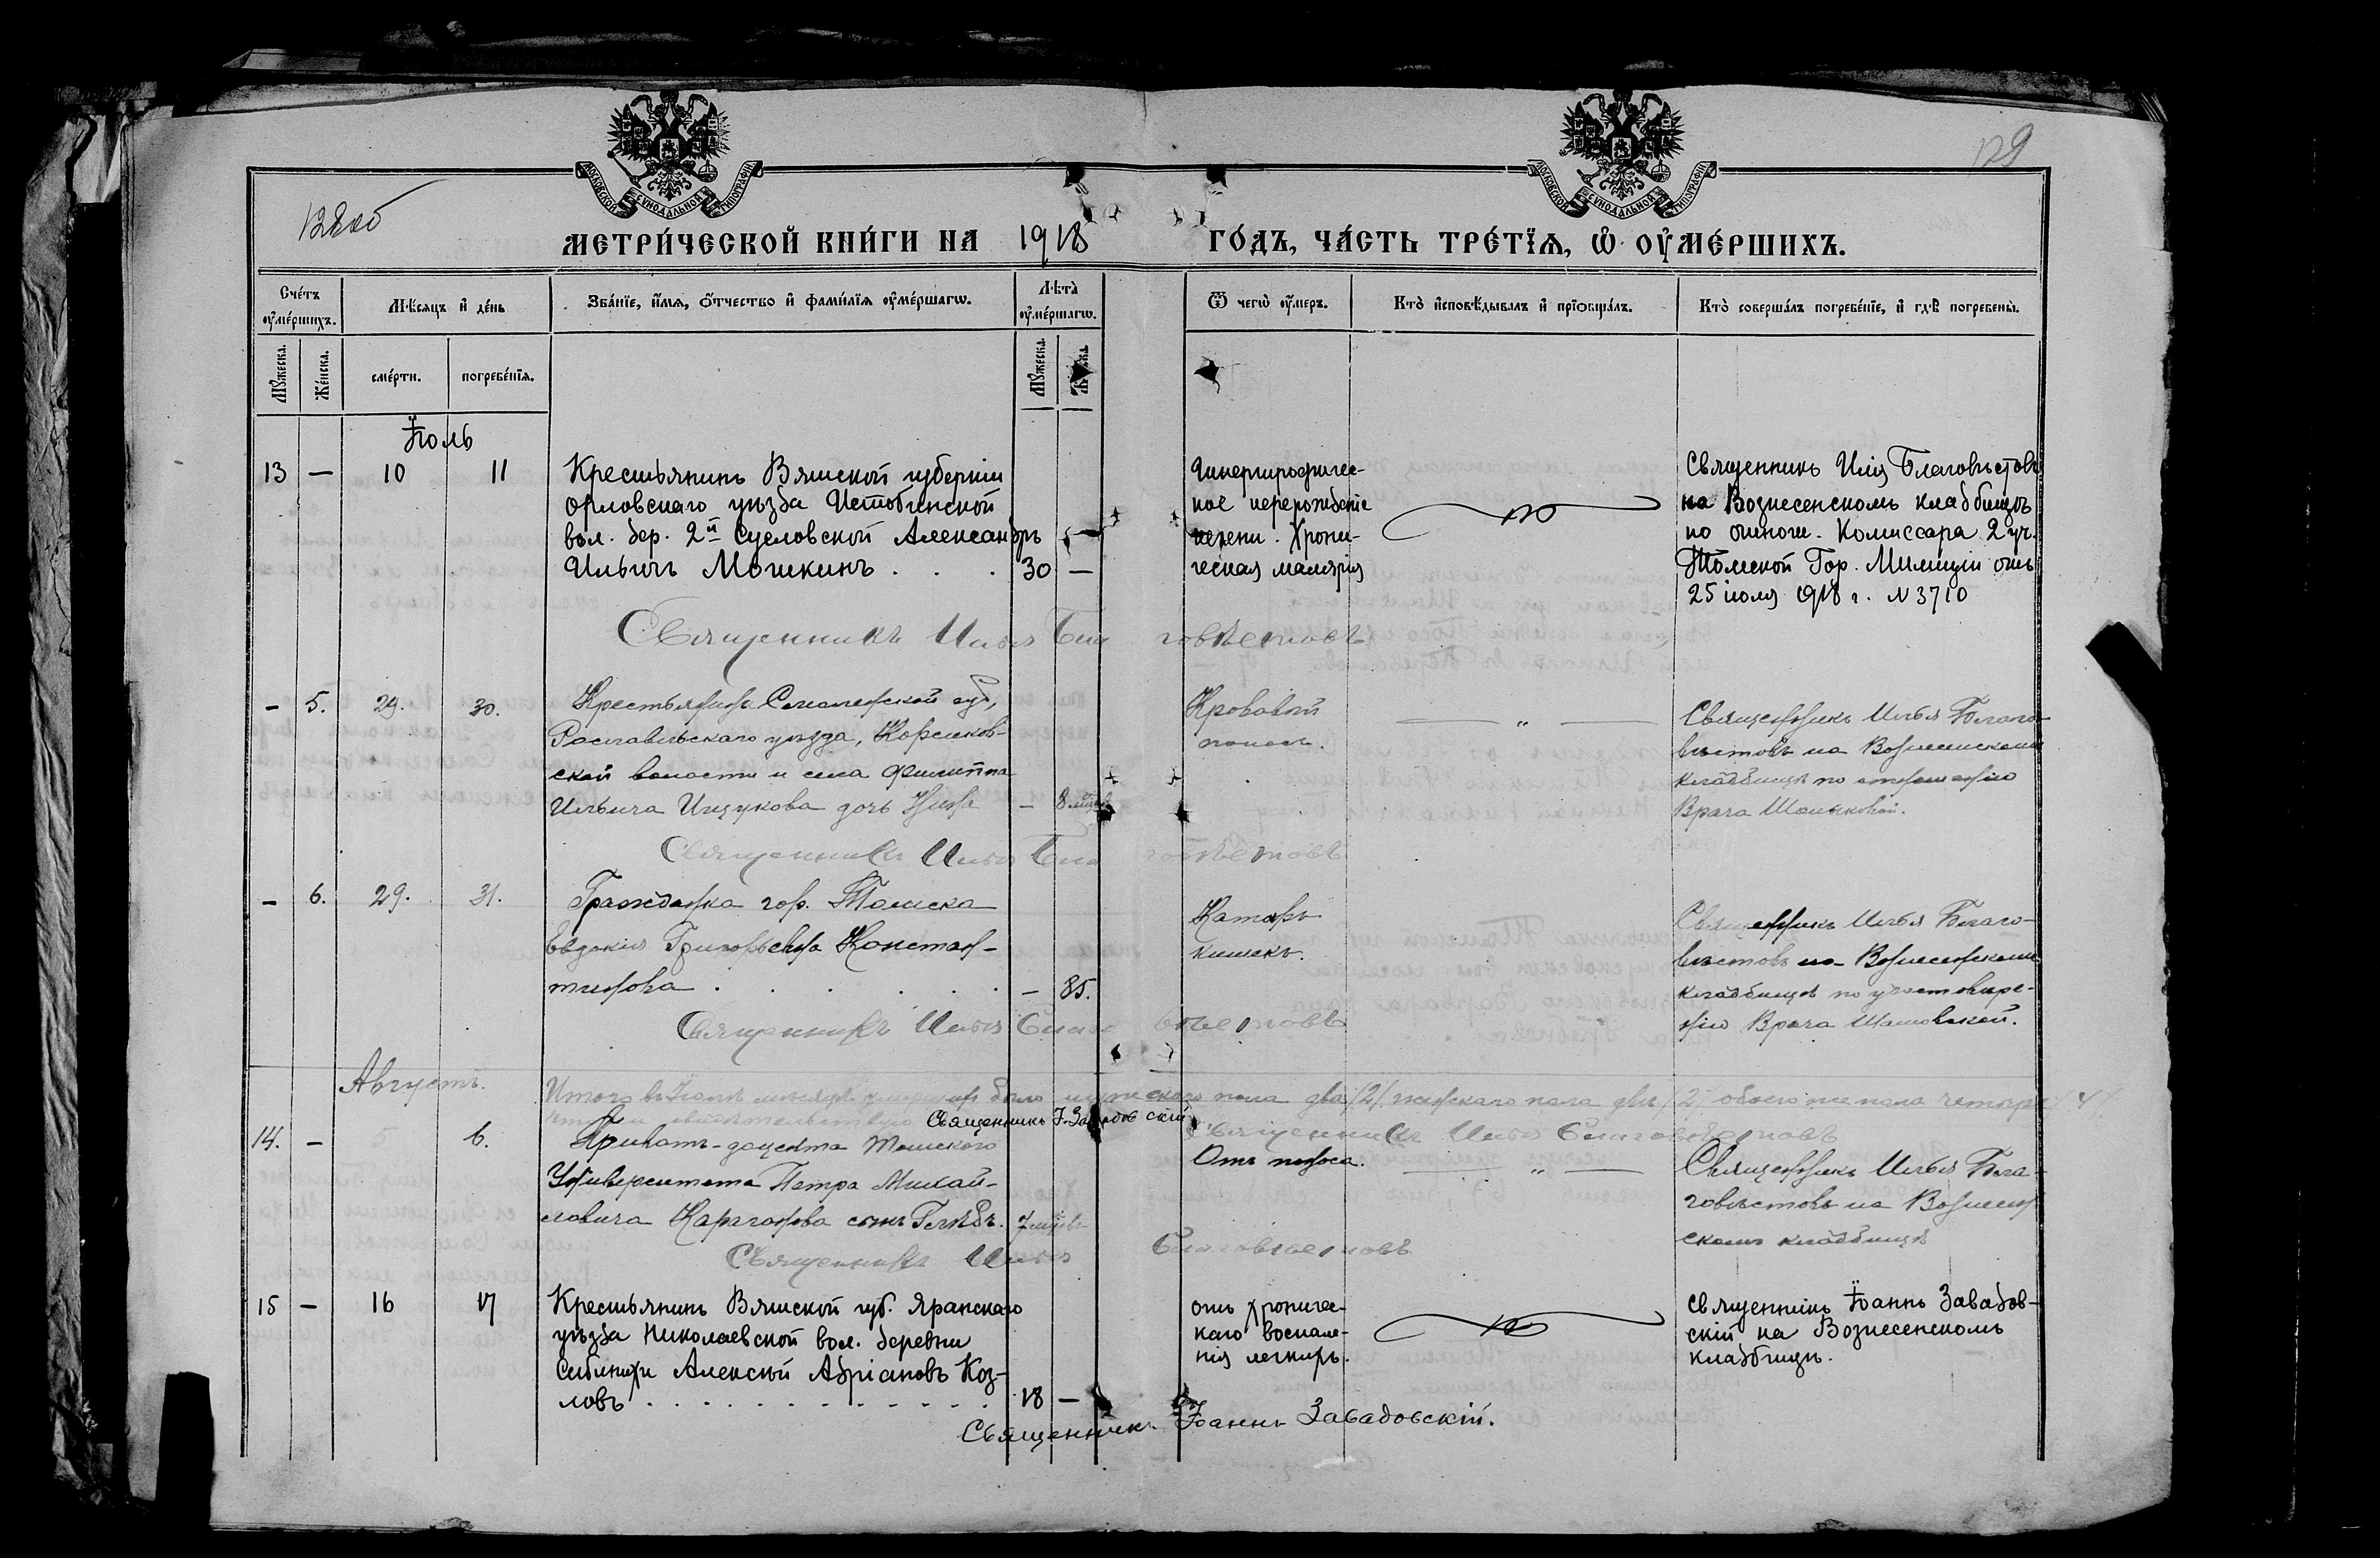 129
128 об
МОСКОВСКОЙ СУНОДАЛЬНОЙ ТИПОГРАФІИ
МОСКОВСКОЙ СУНОДАЛЬНОЙ ТИПОГРАФІИ
МЕТРИ́ЧЕСКОЙ КНИ́ГИ НА 1918 ГО́ДЪ, ЧА́СТЬ ТРЕ́ТІЯ, Ѡ҆ ОУ҆МЕ́РШИХЪ.
Сче́тъ оу҆ме́ршихъ.
Мѣ́сяцъ и҆ де́нь
Зва́нїе, и҆́мѧ, ѻ҆́тчество и҆ фами́лїѧ оу҆ме́ршагѡ.
Лѣта̀ оу҆ме́ршагѡ.
Ѿ чегѡ̀ оу҆́меръ.
Кто̀ и҆сповѣ́дывалъ и҆ прїѡбща́лъ.
Кто̀ соверша́лъ погребе́нїе, и҆ гдѣ̀ погребены̀.
Мꙋ́жеска.
Же́нска.
сме́рти.
погребе́нїѧ.
Мꙋ́жеска.
Же́нска.
Іюль
13 — 10 11
Крестьянинъ Вятской губерніи
Орловскаго уѣзда Истобенской
вол. дер. 2й Сусловской Александръ
Ильичъ Мошкинъ . . . 30 —
Гипертрофичес-
кое перерожденіе
печени. Хрони-
ческая малярія
Священникъ Илія Благовѣстовъ
на Вознесенскомъ кладбищѣ
по отнош. Комиссара 2 уч.
Томской Гор. Милиціи отъ
25 іюля 1918 г. N 3710
Священникъ Илья Благовѣстовъ
— 5. 29. 30.
Крестьянина Смоленской губ,
Рославльскаго уѣзда,
ской волости и села Филиппа
Ильича Ищукова дочь Нина — 8 мѣсяц
Кровавый
поносъ.
— „ —
Священникъ Илья Благо-
вѣстовъ на Вознесенскомъ
кладбищѣ по отношенію
Врача
Священникъ Илья Благовѣстовъ
— 6. 29. 31.
Гражданка гор. Томска
Евдокія Григорьевна Констан-
тинова . . . . . . — 85.
Катаръ
кишекъ.
Священникъ Илья Благо-
вѣстовъ на Вознесенскомъ
кладбищѣ по удостовѣре-
нію Врача
Священникъ Илья Благовѣстовъ
Августъ.
Итого въ Іюлѣ мѣсяцѣ умершихъ было мужскаго пола два /2/ женскаго пола двѣ /2/ обоего же пола четыре /4/.
Священникъ І. Завадовскій
Священникъ Илья Благовѣстовъ
14. — 5 6.
Приватъ-доцента Томскаго
Университета Петра Михай-
ловича Каргапова сынъ Глѣбъ. 7 мѣсяцъ
Отъ поноса.
— „ —
Священникъ Илья Бла-
говѣстовъ на Вознесен
скомъ кладбищѣ
Священникъ Илья Благовѣстовъ
15 — 16 17
Крестьянинъ Вятской губ. Яранскаго
уѣзда Николаевской вол. деревни
Алексѣй Адріановъ Коз-
ловъ . . . . . . . . . . . . . 18 —
отъ хроничес-
каго воспале-
нія легкихъ.
Священникъ Іоаннъ Завадов-
скій на Вознесенскомъ
кладбищѣ.
Священникъ Іоаннъ Завадовскій.